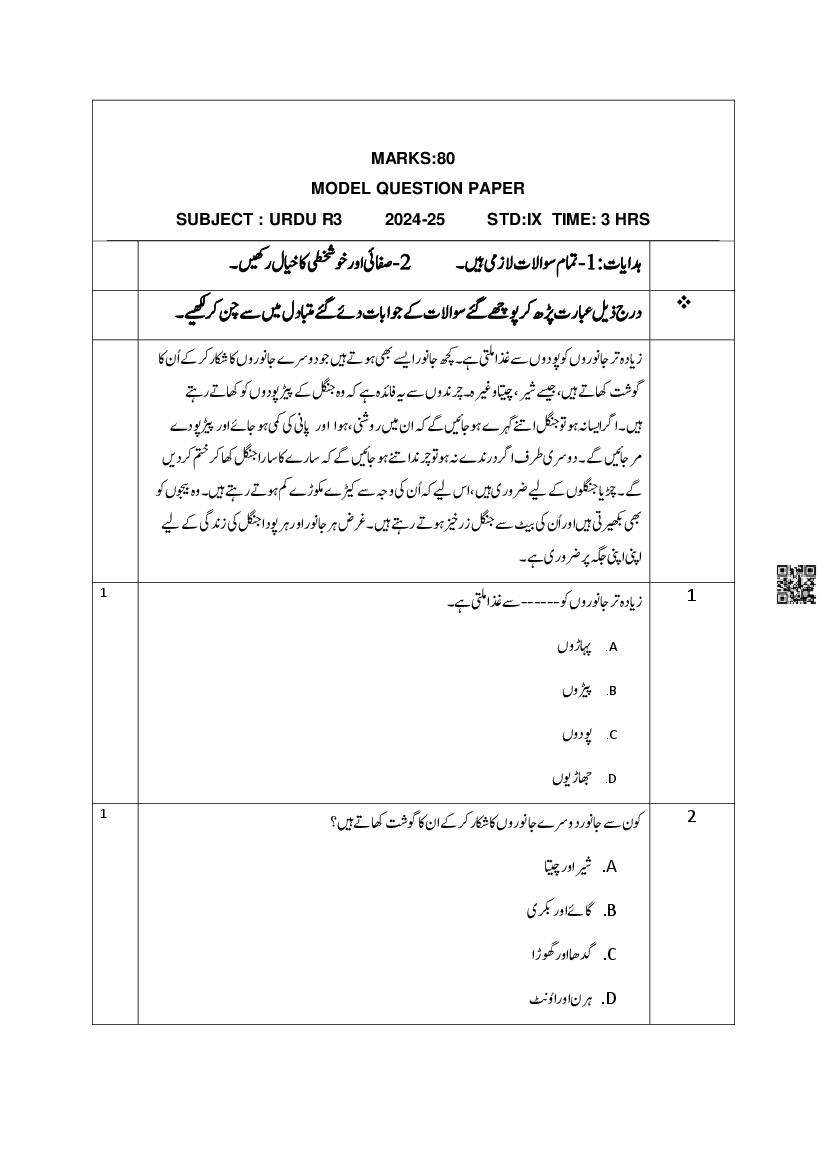 MARKS:80
MODEL QUESTION PAPER
SUBJECT : URDU R3 2024-25 STD:IX TIME: 3 HRS
ہدایات: 1-تمام سوالات لازمی ہیں۔ 2-صفائی اور خوشخطی کا خیال رکھیں۔
❖ درج ذیل عبارت پڑھ کر پوچھے گئے سوالات کے جوابات دئے گئے متبادل میں سے چن کر لکھیے۔
زیادہ تر جانوروں کو پودوں سے غذا ملتی ہے۔ کچھ جانور ایسے بھی ہوتے ہیں جو دوسرے جانوروں کا شکار کر کے اُن کا
گوشت کھاتے ہیں، جیسے شیر ، چیتا وغیرہ۔ چرندوں سے یہ فائدہ ہے کہ وہ جنگل کے پیڑ پودوں کو کھاتے رہتے
ہیں۔ اگر ایسا نہ ہو تو جنگل اتنے گہرے ہو جائیں گے کہ ان میں روشنی، ہوا اور پانی کی کمی ہو جائے اور پیڑ پودے
مر جائیں گے۔ دوسری طرف اگر درندے نہ ہو تو چرندا تنے ہو جائیں گے کہ سارے کا سارا جنگل کھا کر ختم کر دیں
گے۔ چڑیا جنگلوں کے لیے ضروری ہیں، اس لیے کہ اُن کی وجہ سے کیڑے مکوڑے کم ہوتے رہتے ہیں۔ وہ بیجوں کو
بھی بکھیرتی ہیں اور اُن کی بیٹ سے جنگل زرخیز ہوتے رہتے ہیں۔ غرض ہر جانور اور ہر پودا جنگل کی زندگی کے لیے
اپنی اپنی جگہ پر ضروری ہے۔
1 زیادہ تر جانوروں کو ------ سے غذا ملتی ہے۔ 1
A. پہاڑوں
B. پیڑوں
C. پودوں
D. جھاڑیوں
2 کون سے جانور دوسرے جانوروں کا شکار کر کے ان کا گوشت کھاتے ہیں؟ 1
A. شیر اور چیتا
B. گائے اور بکری
C. گدھا اور گھوڑا
D. ہرن اور اؤنٹ